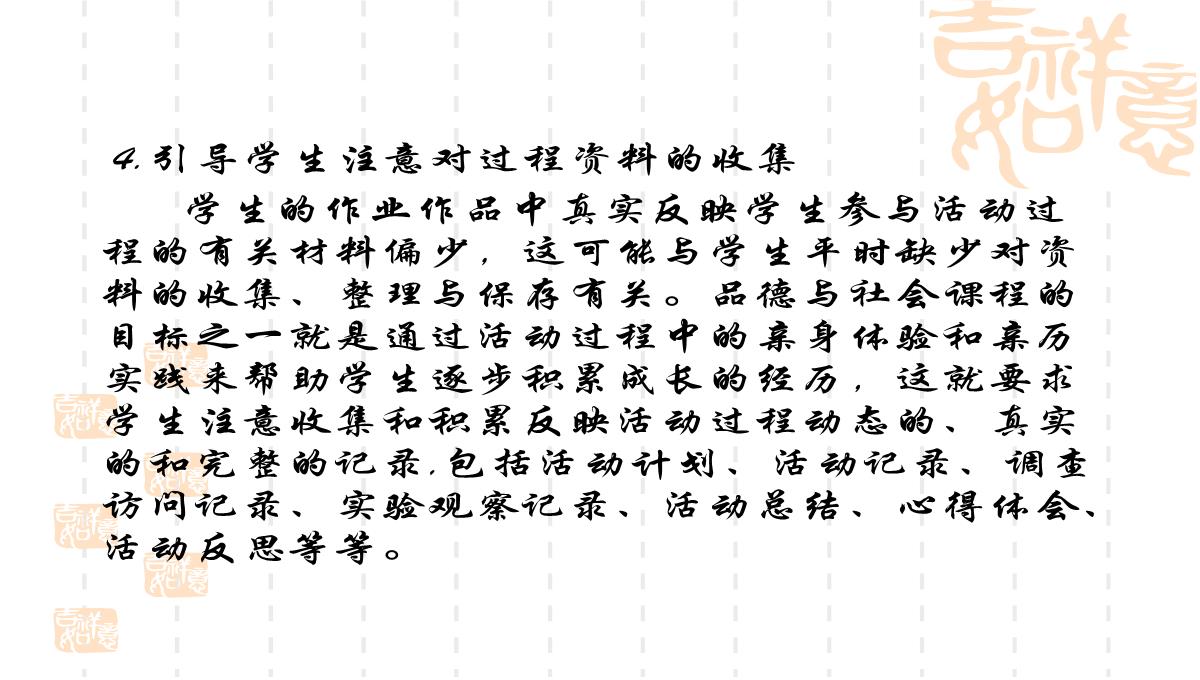 吉祥如意
4.引导学生注意对过程资料的收集
学生的作业作品中真实反映学生参与活动过
程的有关材料偏少，这可能与学生平时缺少对资
料的收集、整理与保存有关。品德与社会课程的
目标之一就是通过活动过程中的亲身体验和亲历
实践来帮助学生逐步积累成长的经历，这就要求
学生注意收集和积累反映活动过程动态的、真实
的和完整的记录,包括活动计划、活动记录、调查
访问记录、实验观察记录、活动总结、心得体会、
活动反思等等。
吉祥如意
吉祥如意
吉祥如意
吉祥如意
吉祥如意
吉祥如意